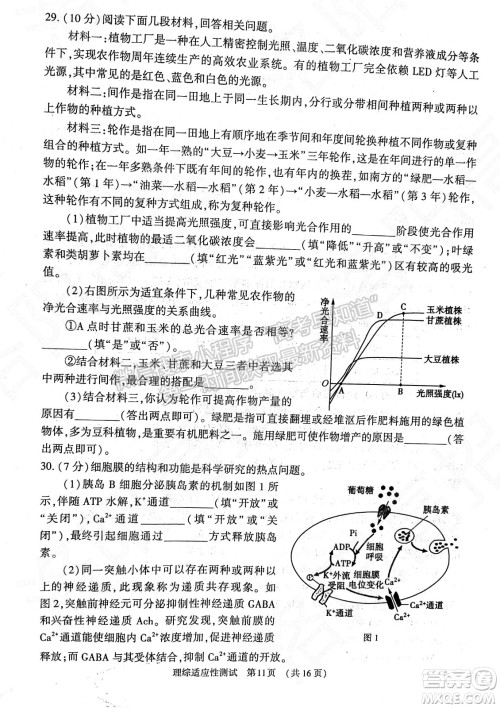 29. (10 分) 阅读下面几段材料, 回答相关问题。
材料一: 植物工厂是一种在人工精密控制光照、温度、二氧化碳浓度和营养液成分等条件
下, 实现农作物周年连续生产的高效农业系统。有的植物工厂完全依赖 LED 灯等人工
光源, 其中常见的是红色、蓝色和白色的光源。
材料二: 间作是指在同一田地上于同一生长期内, 分行或分带相间种植两种或两种以
上作物的种植方式。
材料三: 轮作是指在同一田地上有顺序地在季节间和年度间轮换种植不同作物或复种
组合的种植方式。如一年一熟的“大豆→小麦→玉米”三年轮作, 在南方的“绿肥—水稻—
水稻”(第 1 年)→“油菜—水稻—水稻”(第 2 年)→“小麦—水稻—水稻”(第 3 年) 轮作,
这种轮作由不同的复种方式组成, 称为复种轮作。
(1) 植物工厂中适当提高光照强度, 可直接影响光合作用的______阶段使光合作用
速率提高, 此时植物的最适二氧化碳浓度会______(填“降低”“升高”或“不变”); 叶绿
素和类胡萝卜素均吸收______(填“红光”“蓝紫光”或“红光和蓝紫光”), 有较高的吸光
值。
(2) 右图所示为适宜条件下, 几种常见农作物的
净光合速率与光照强度的关系曲线。
①A 点时甘蔗和玉米的总光合速率是否相等?
(填“是”或“否”)。
②结合材料二, 玉米、甘蔗和大豆三者中若选择其
中两种间作, 最合理的搭配是______,
原因是______(答出两点即可)。
净光合速率
玉米植株
甘蔗植株
大豆植株
A
B
C
O
光照强度(lx)
(3) 结合材料三, 你认为轮作的好处有
______(答出两点即可)。绿肥是指可直接翻埋或经堆沤后作肥料施用的绿色植物体,
多为豆科植物, 是重要的有机肥料之一。施用绿肥可使作物增产的原因是______
______(答出两点即可)。
30. (7 分) 细胞膜的结构和功能是科学研究的热点问题。
(1) 胰岛 B 细胞分泌胰岛素的机制如图 1 所
示, 伴随 ATP 水解, K⁺通道______(填“开放”或
“关闭”), Ca²⁺通道______(填“开放”或“关
闭”), 最后细胞通过______方式释放胰岛
素。
(2) 同一突触小体中可以存在两种或两种以
上的神经递质, 此现象称为递质共存现象。如图
2, 突触前神经元可分泌抑制性神经递质 GABA
和兴奋性神经递质 Ach。研究发现, 当突触小体
的 Ca²⁺浓度增加明显时, 会引起 Ach 的释放;
而 GABA 的释放不依赖 Ca²⁺通道的开放。
葡萄糖
胰岛素
Pi
ADP
ATP
细胞
呼吸
K⁺外流
细胞膜
引发
电位变化
Ca²⁺
Ca²⁺
图 1
理综适应性测试 第 11 页 (共 16 页)